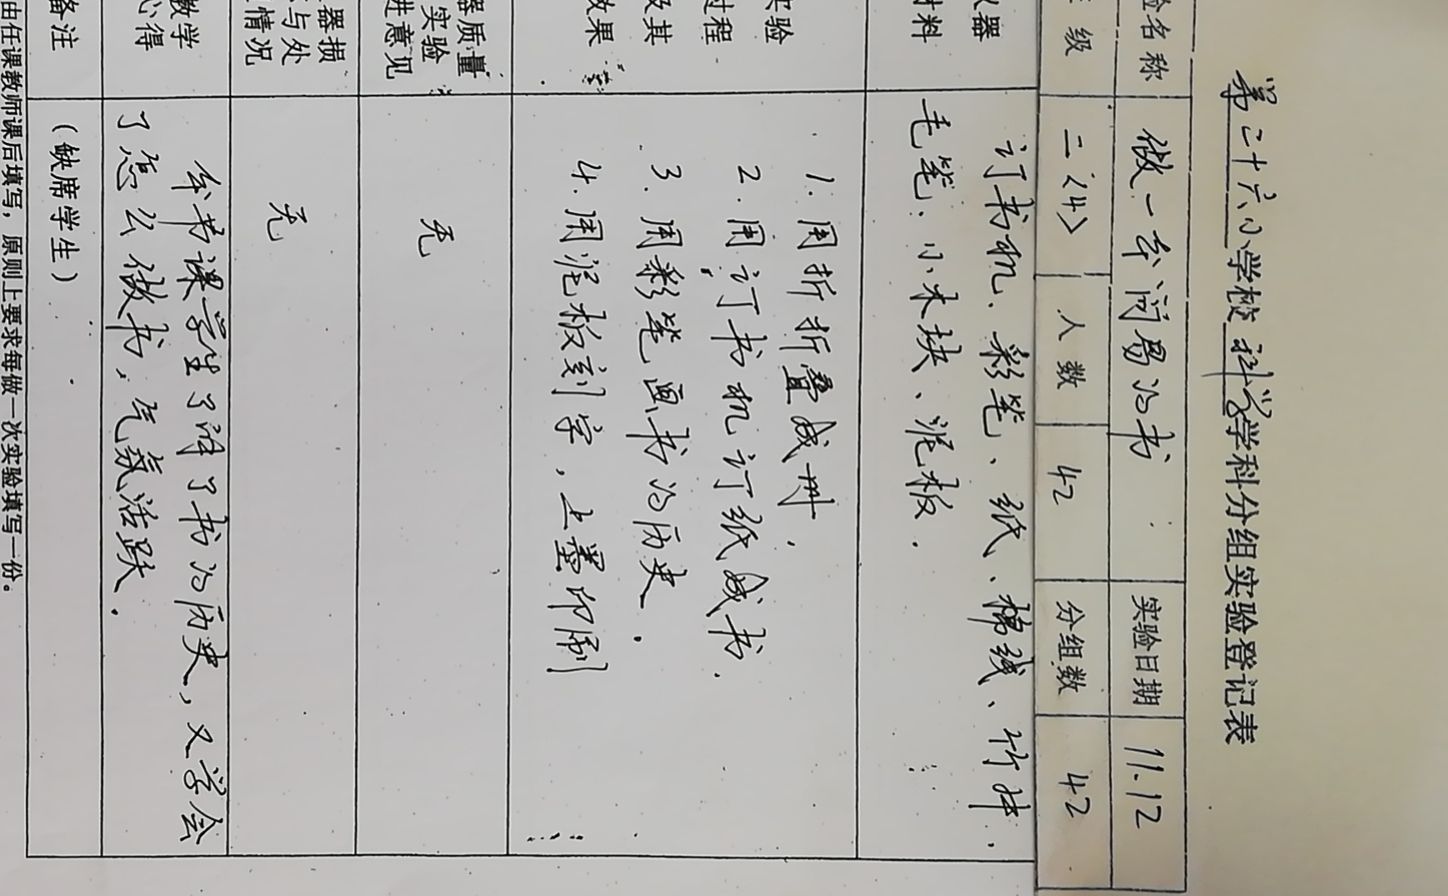 第二十六小学校科学学科分组实验登记表
验名称 做一本简易的书 实验日期 11.12
级 二〈4〉 人数 42 分组数 42
仪器
材料
订书机、彩笔、纸、棉线、竹
毛笔、小木块、泥板.
实验
过程
及其
效果
1.用折折叠成册.
2.用订书机订纸成书.
3.用彩笔画书的历史.
4.用泥板刻字,上墨印刷
器质量
实验
进意见
无
器损
与处
情况
无
教学
心得
本书课学生了解了书的历史,又学会
了怎么做书,气氛活跃.
备注 (缺席学生)
由任课教师课后填写,原则上要求每做一次实验填写一份。